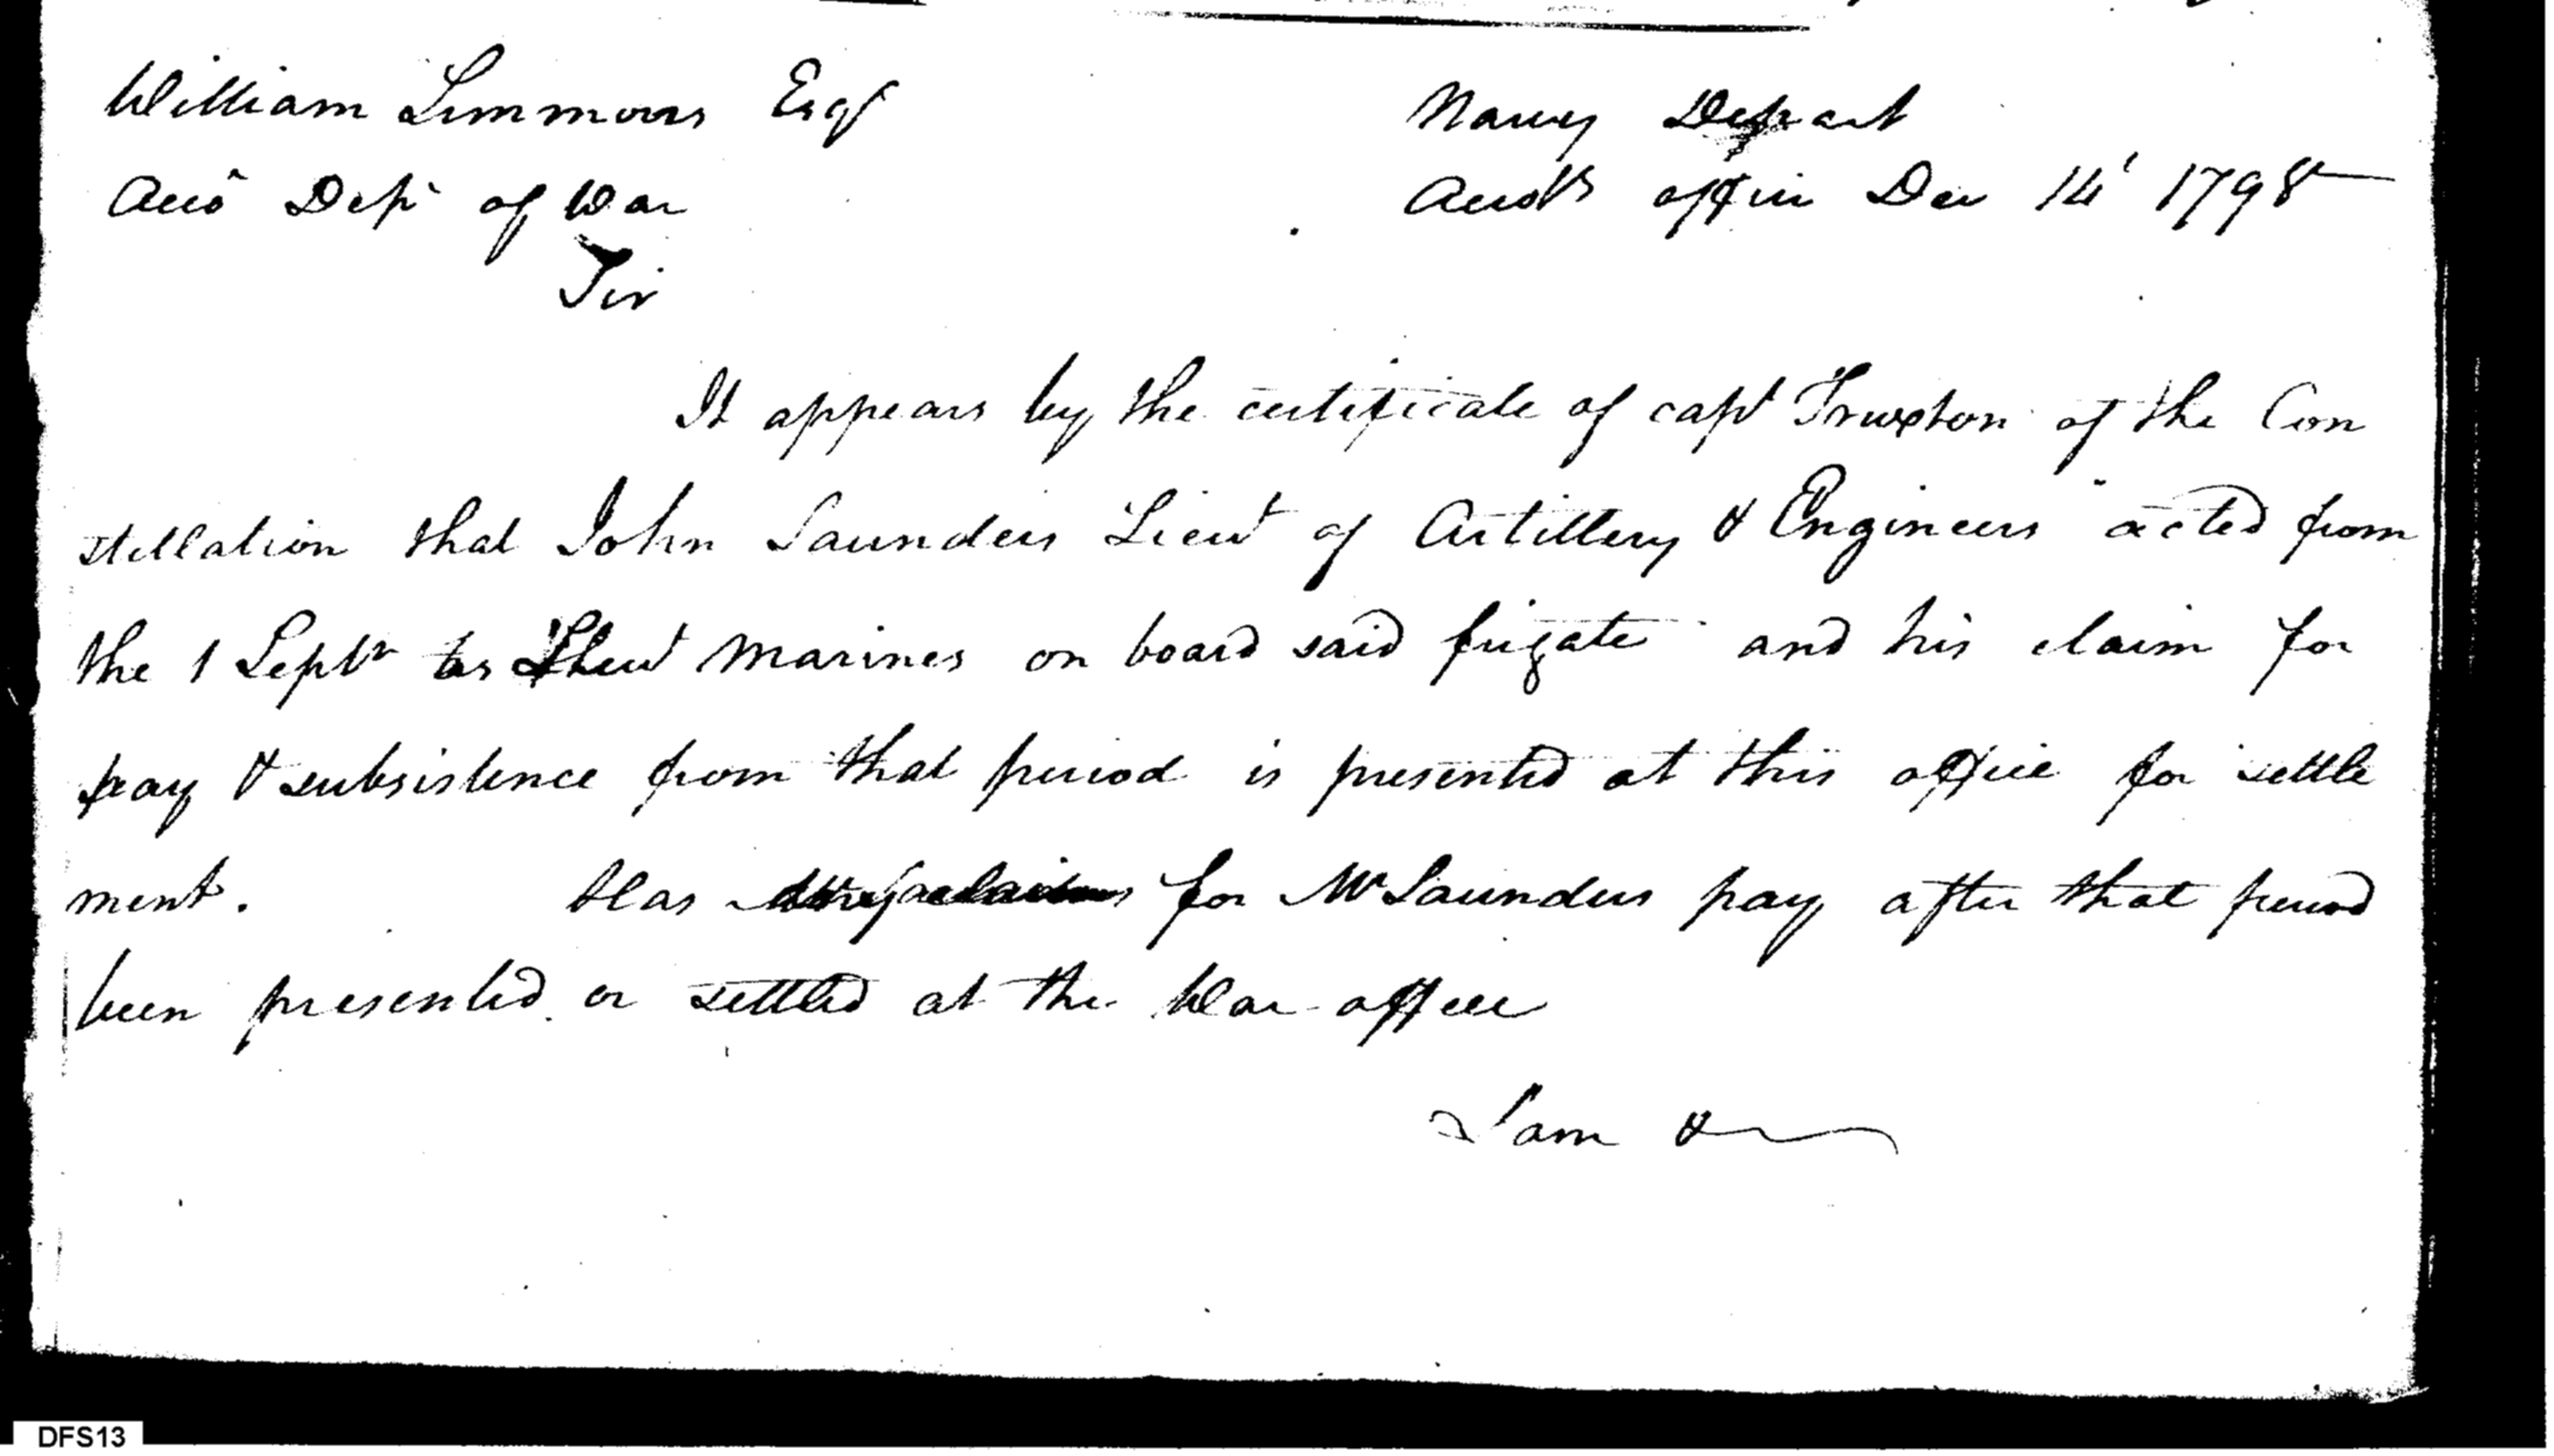 William Simmons Esqr Navy Depart
Acco Dept of War Accots office Dec 14' 1798
Sir
It appears by the certificate of capt Truxton of the Con
stellation that John Saunders Lieut of Artillery & Engineers "acted from
the 1 Septr as Lieut Marines on board said frigate" and his claim for
pay & subsistence from that period is presented at this office for settle
ment. Has for Mr Saunders pay after that period
been presented or settled at the War office
I am &
DFS13